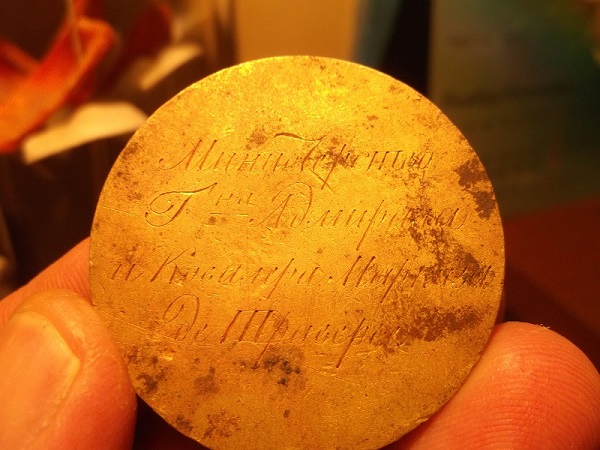 Министерства
Г-на Адмирала
и Кавалера Маркиза
де Траверсе